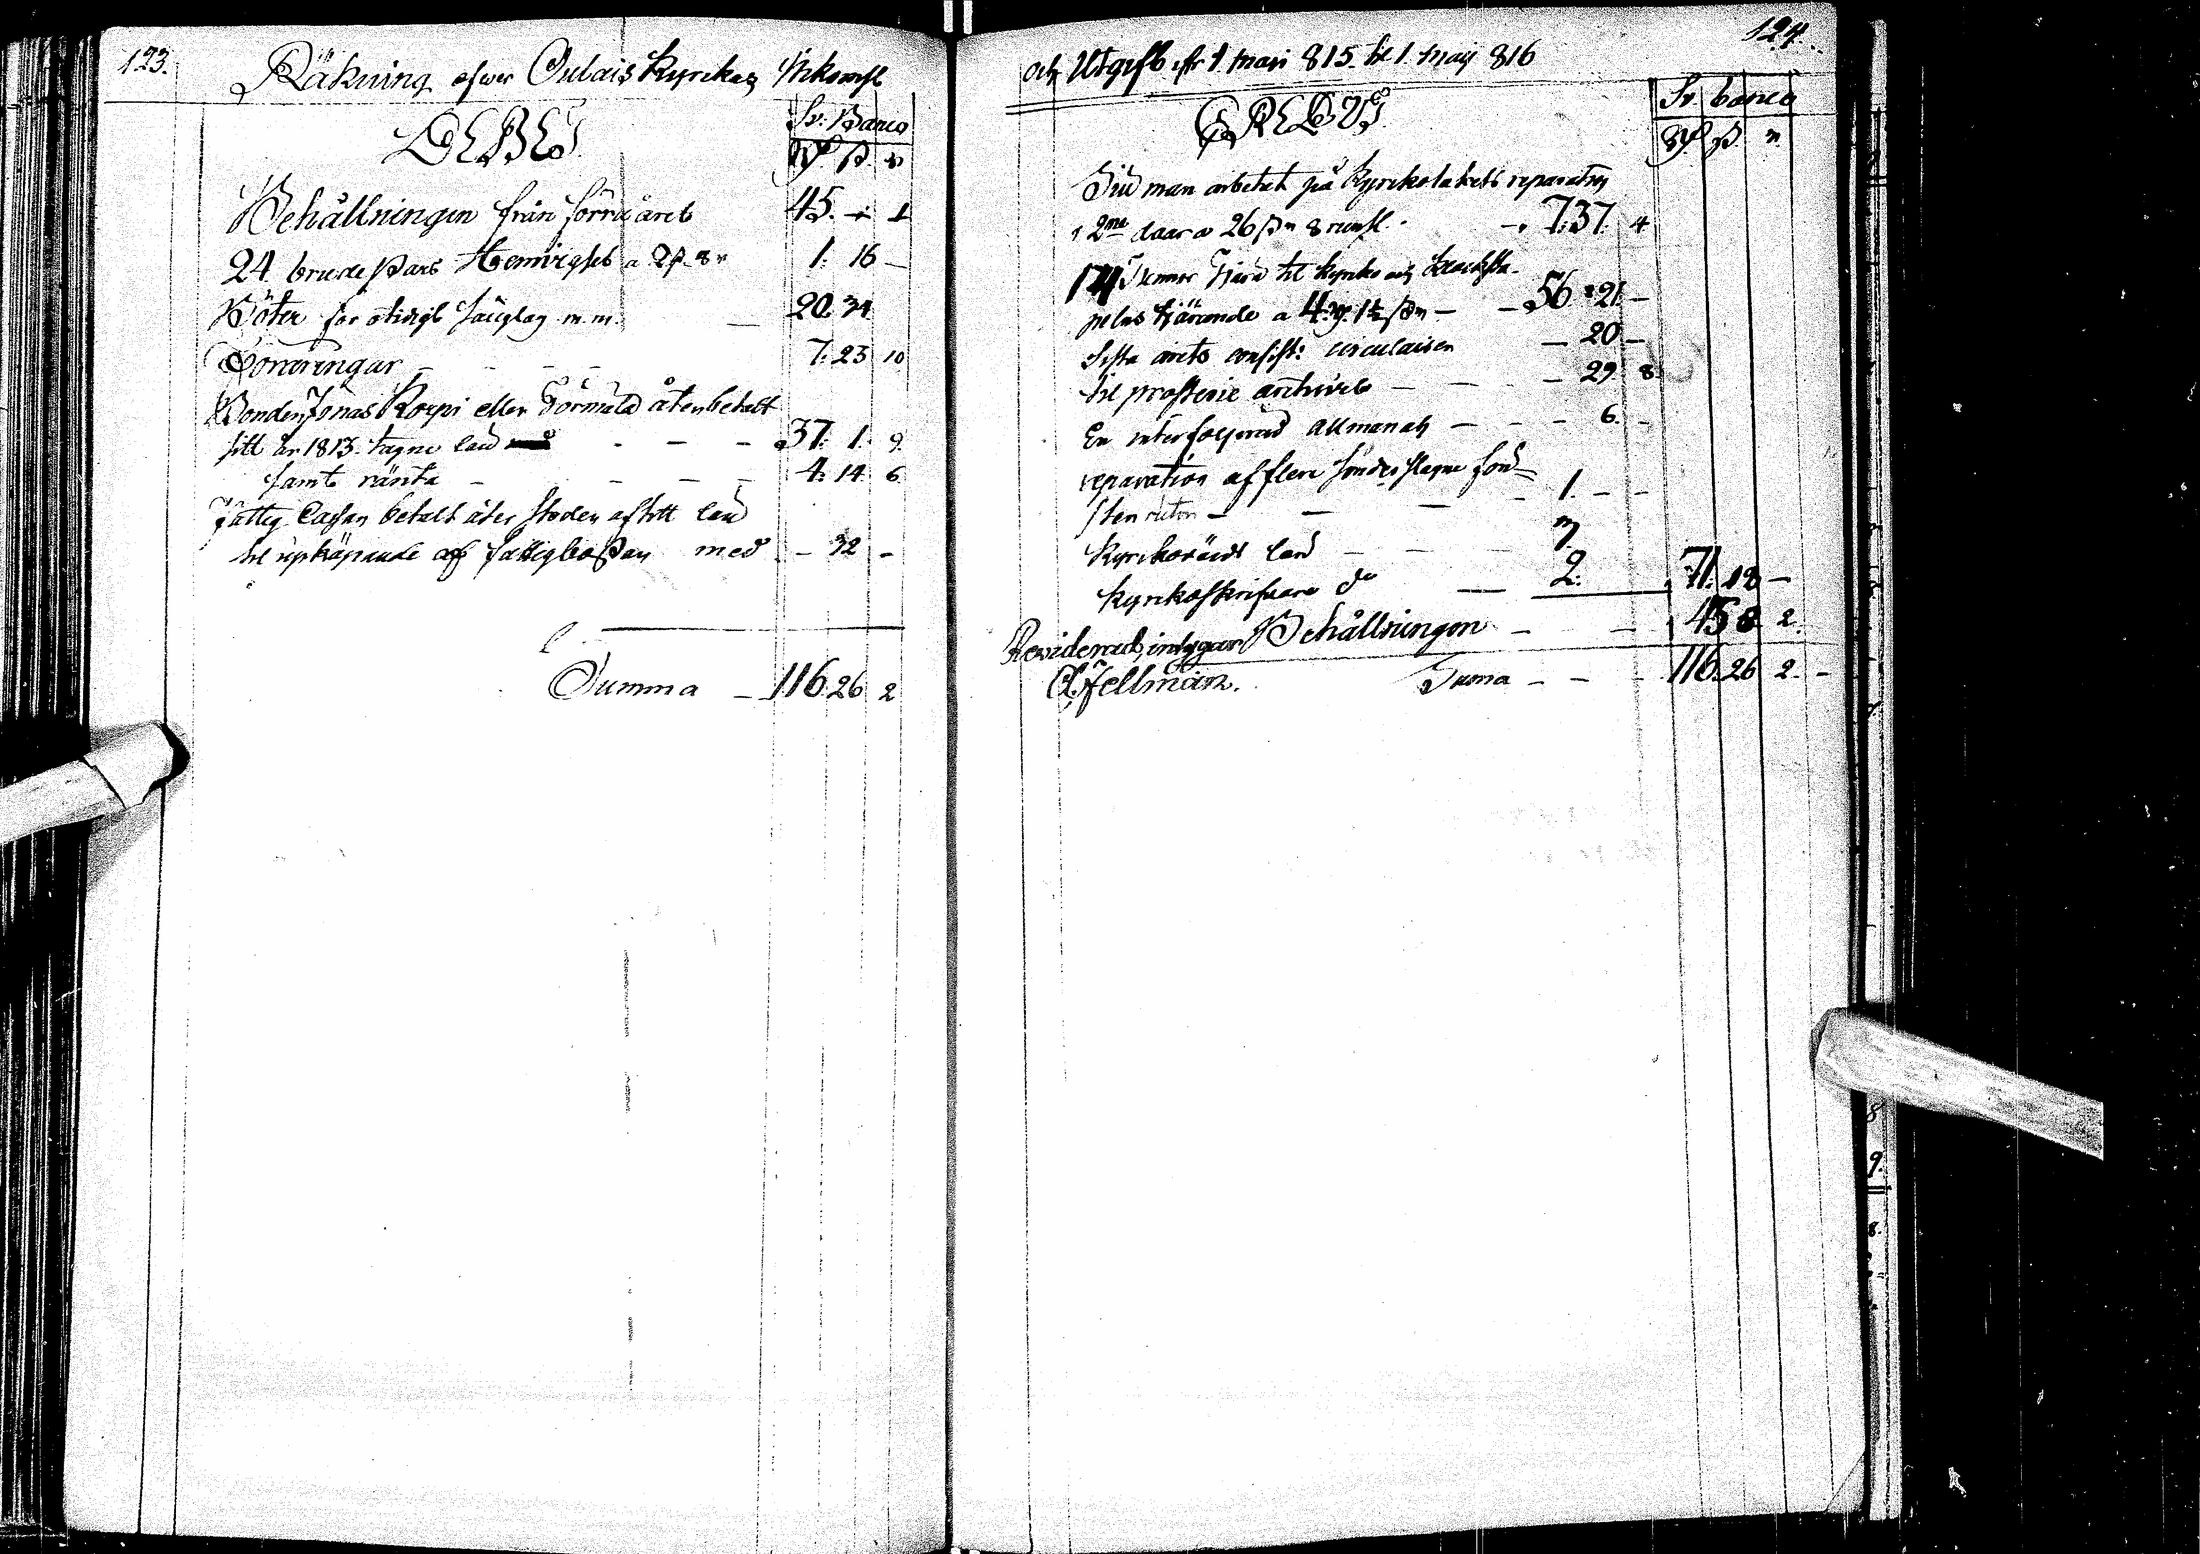 123.
Räkning öfwer Oulais Kyrckas Inkomst
DEBET
Sv: Banco
Rd ß. rs
Behållningen från förra året 45. - 1
24 brudepars Hemvigsel a 2 ß 8 rs 1. 16 -
Böter för otidigt sänglag m.m. - 20. 34
Förväringar - - - 7. 23 10
Bonden Jonas Korpi eller Törmälä återbetalt
sitt år 1813. tagne lån - - - 37. 1. 9.
samt ränta - - - - 4. 14. 6
Fattig Cassan betalt åter stoden af sitt lån
til upköpande af fattigbössan med - 32 -
Summa - 116. 26 2
124.
och Utgift ifr. 1 maji 815. til 1. maji 816
CREDIT
Sv. banco
Rd ß. rs
man arbetat på Kyrckotakets reparation
i 2ne daar a 26 ß 8 runst. - 7. 37. 4
14 Tunnor Tjära til kyrko och klocksta-
pelns tjärande a 4 rd. 1 1/2 ß - - 56. 21. -
Sista årets consist: circulairen - 20 -
til prosterie archivet - - - 29. 8.
En interfolierad Allmanach - - - 6. -
reparation af flere sönderslagne fön-
sterrutor - - - - 1. - -
Kyrkovärds lön - - - 3
Kyrkoskrifvare do - 2. 71. 18 -
Behållningen - - 45 8 2.
Reviderad, intygar
C. Fellman.
Suma - - - 116. 26 2. -